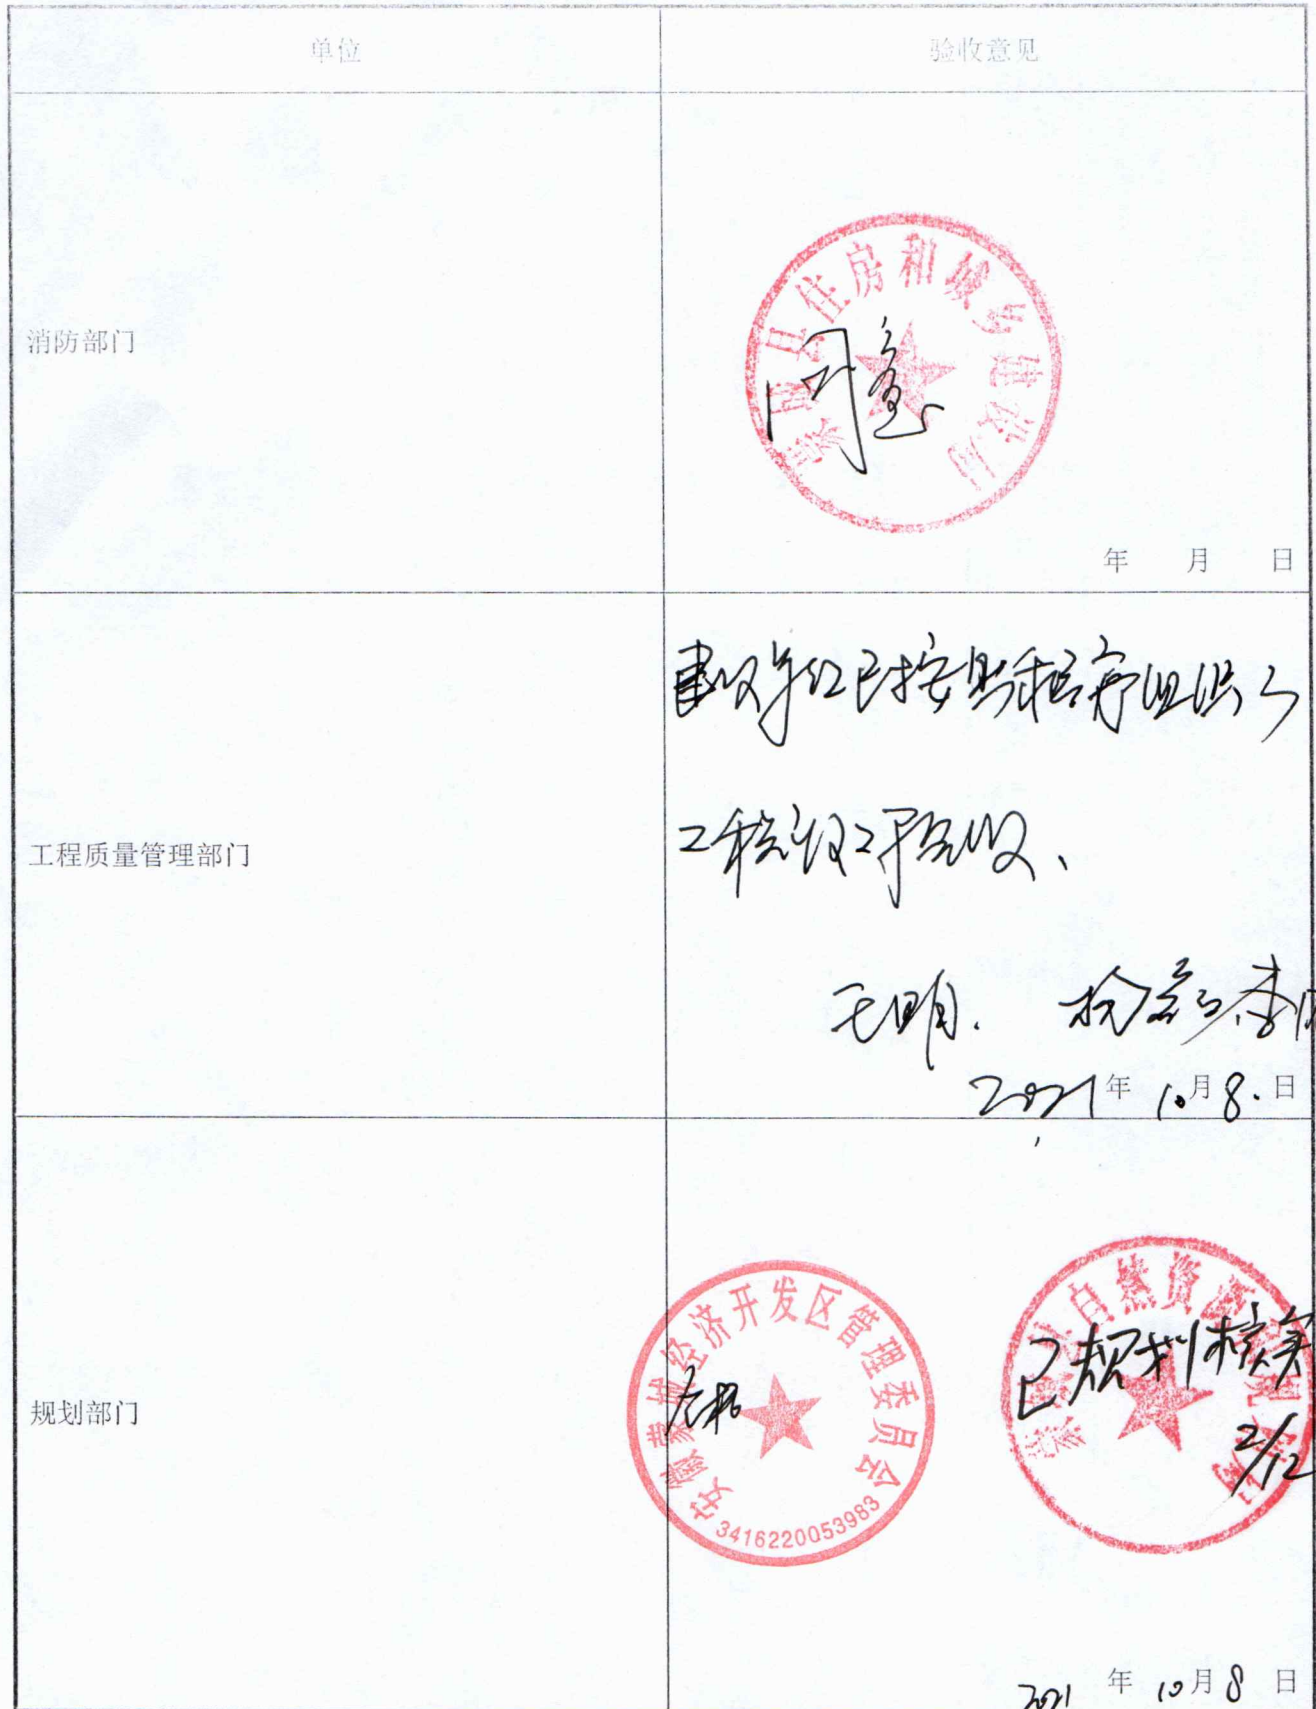 单位 验收意见
消防部门
蒙城县住房和城乡建设局
同意
年 月 日
工程质量管理部门
建设单位已按照程序组织了
工程竣工验收、
王明.
2021年 10月8.日
规划部门
安徽蒙城经济开发区管理委员会
3416220053983
蒙城县自然资源和规划局
已规划核实
2/12
2021 年 10月8日